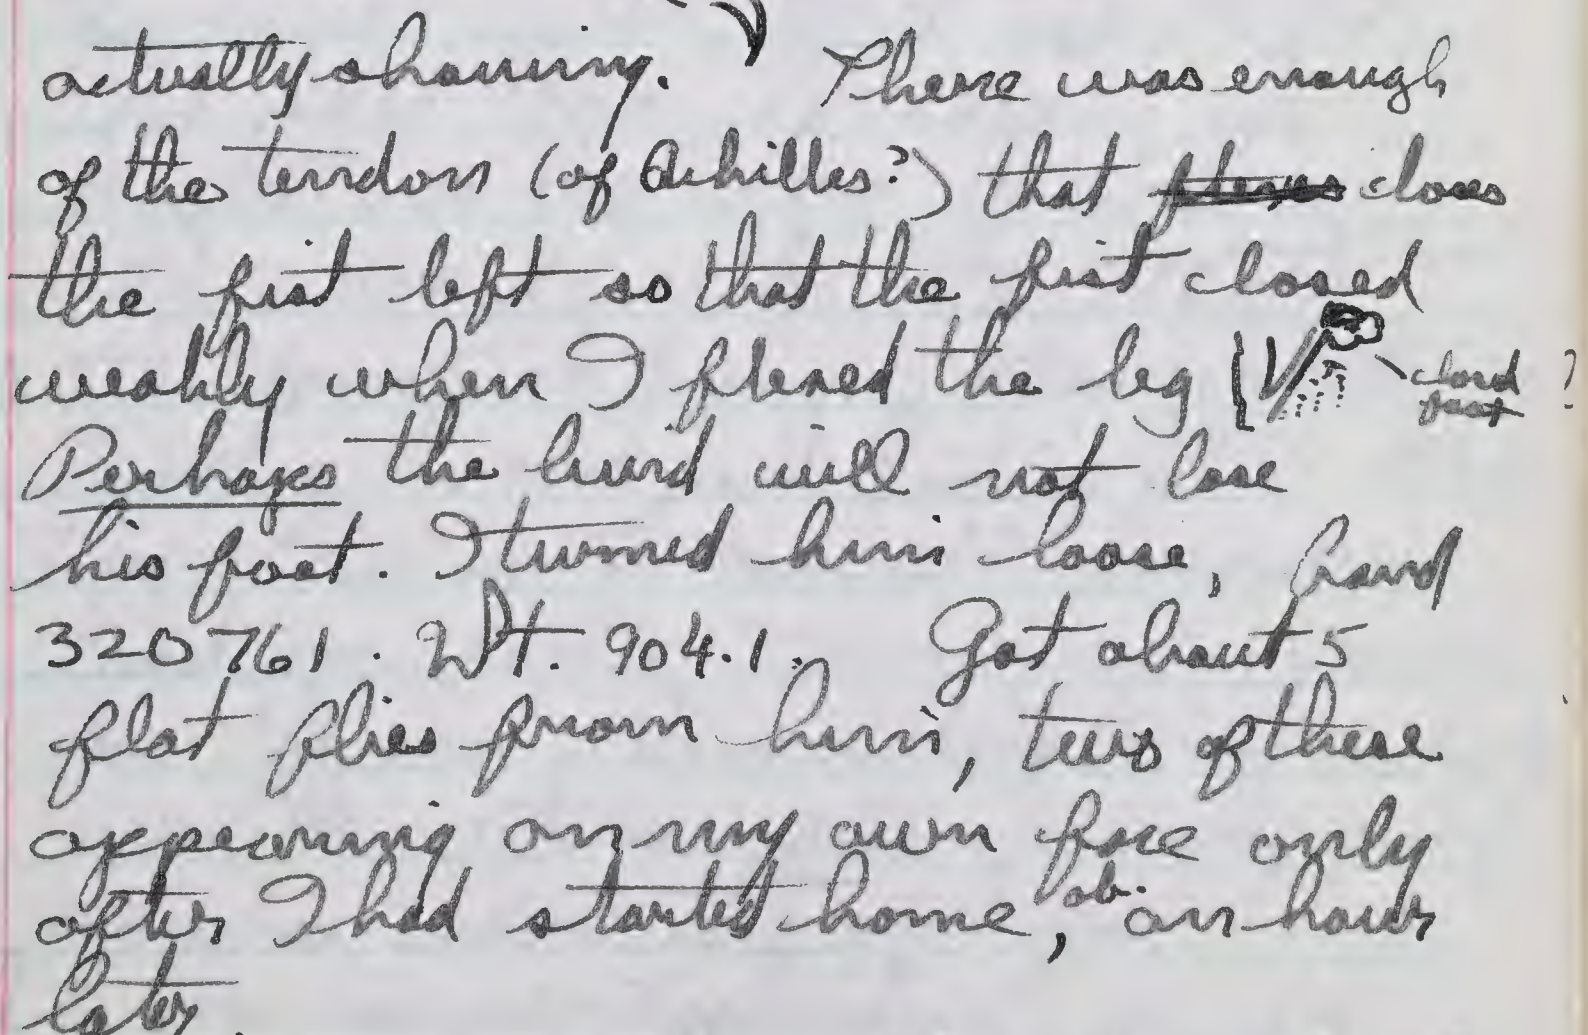 actually showing. There was enough
of the tendon (of Achilles?) that flexes closes
the fist left so that the fist closed
weakly when I flexed the leg
closed
fist ?
Perhaps the bird will not lose
his foot. I turned him loose, band
320761. Wt. 904.1. Got about 5
flat flies from him, two of these
appearing on my own face only
after I had started home, ab. an hour
later.